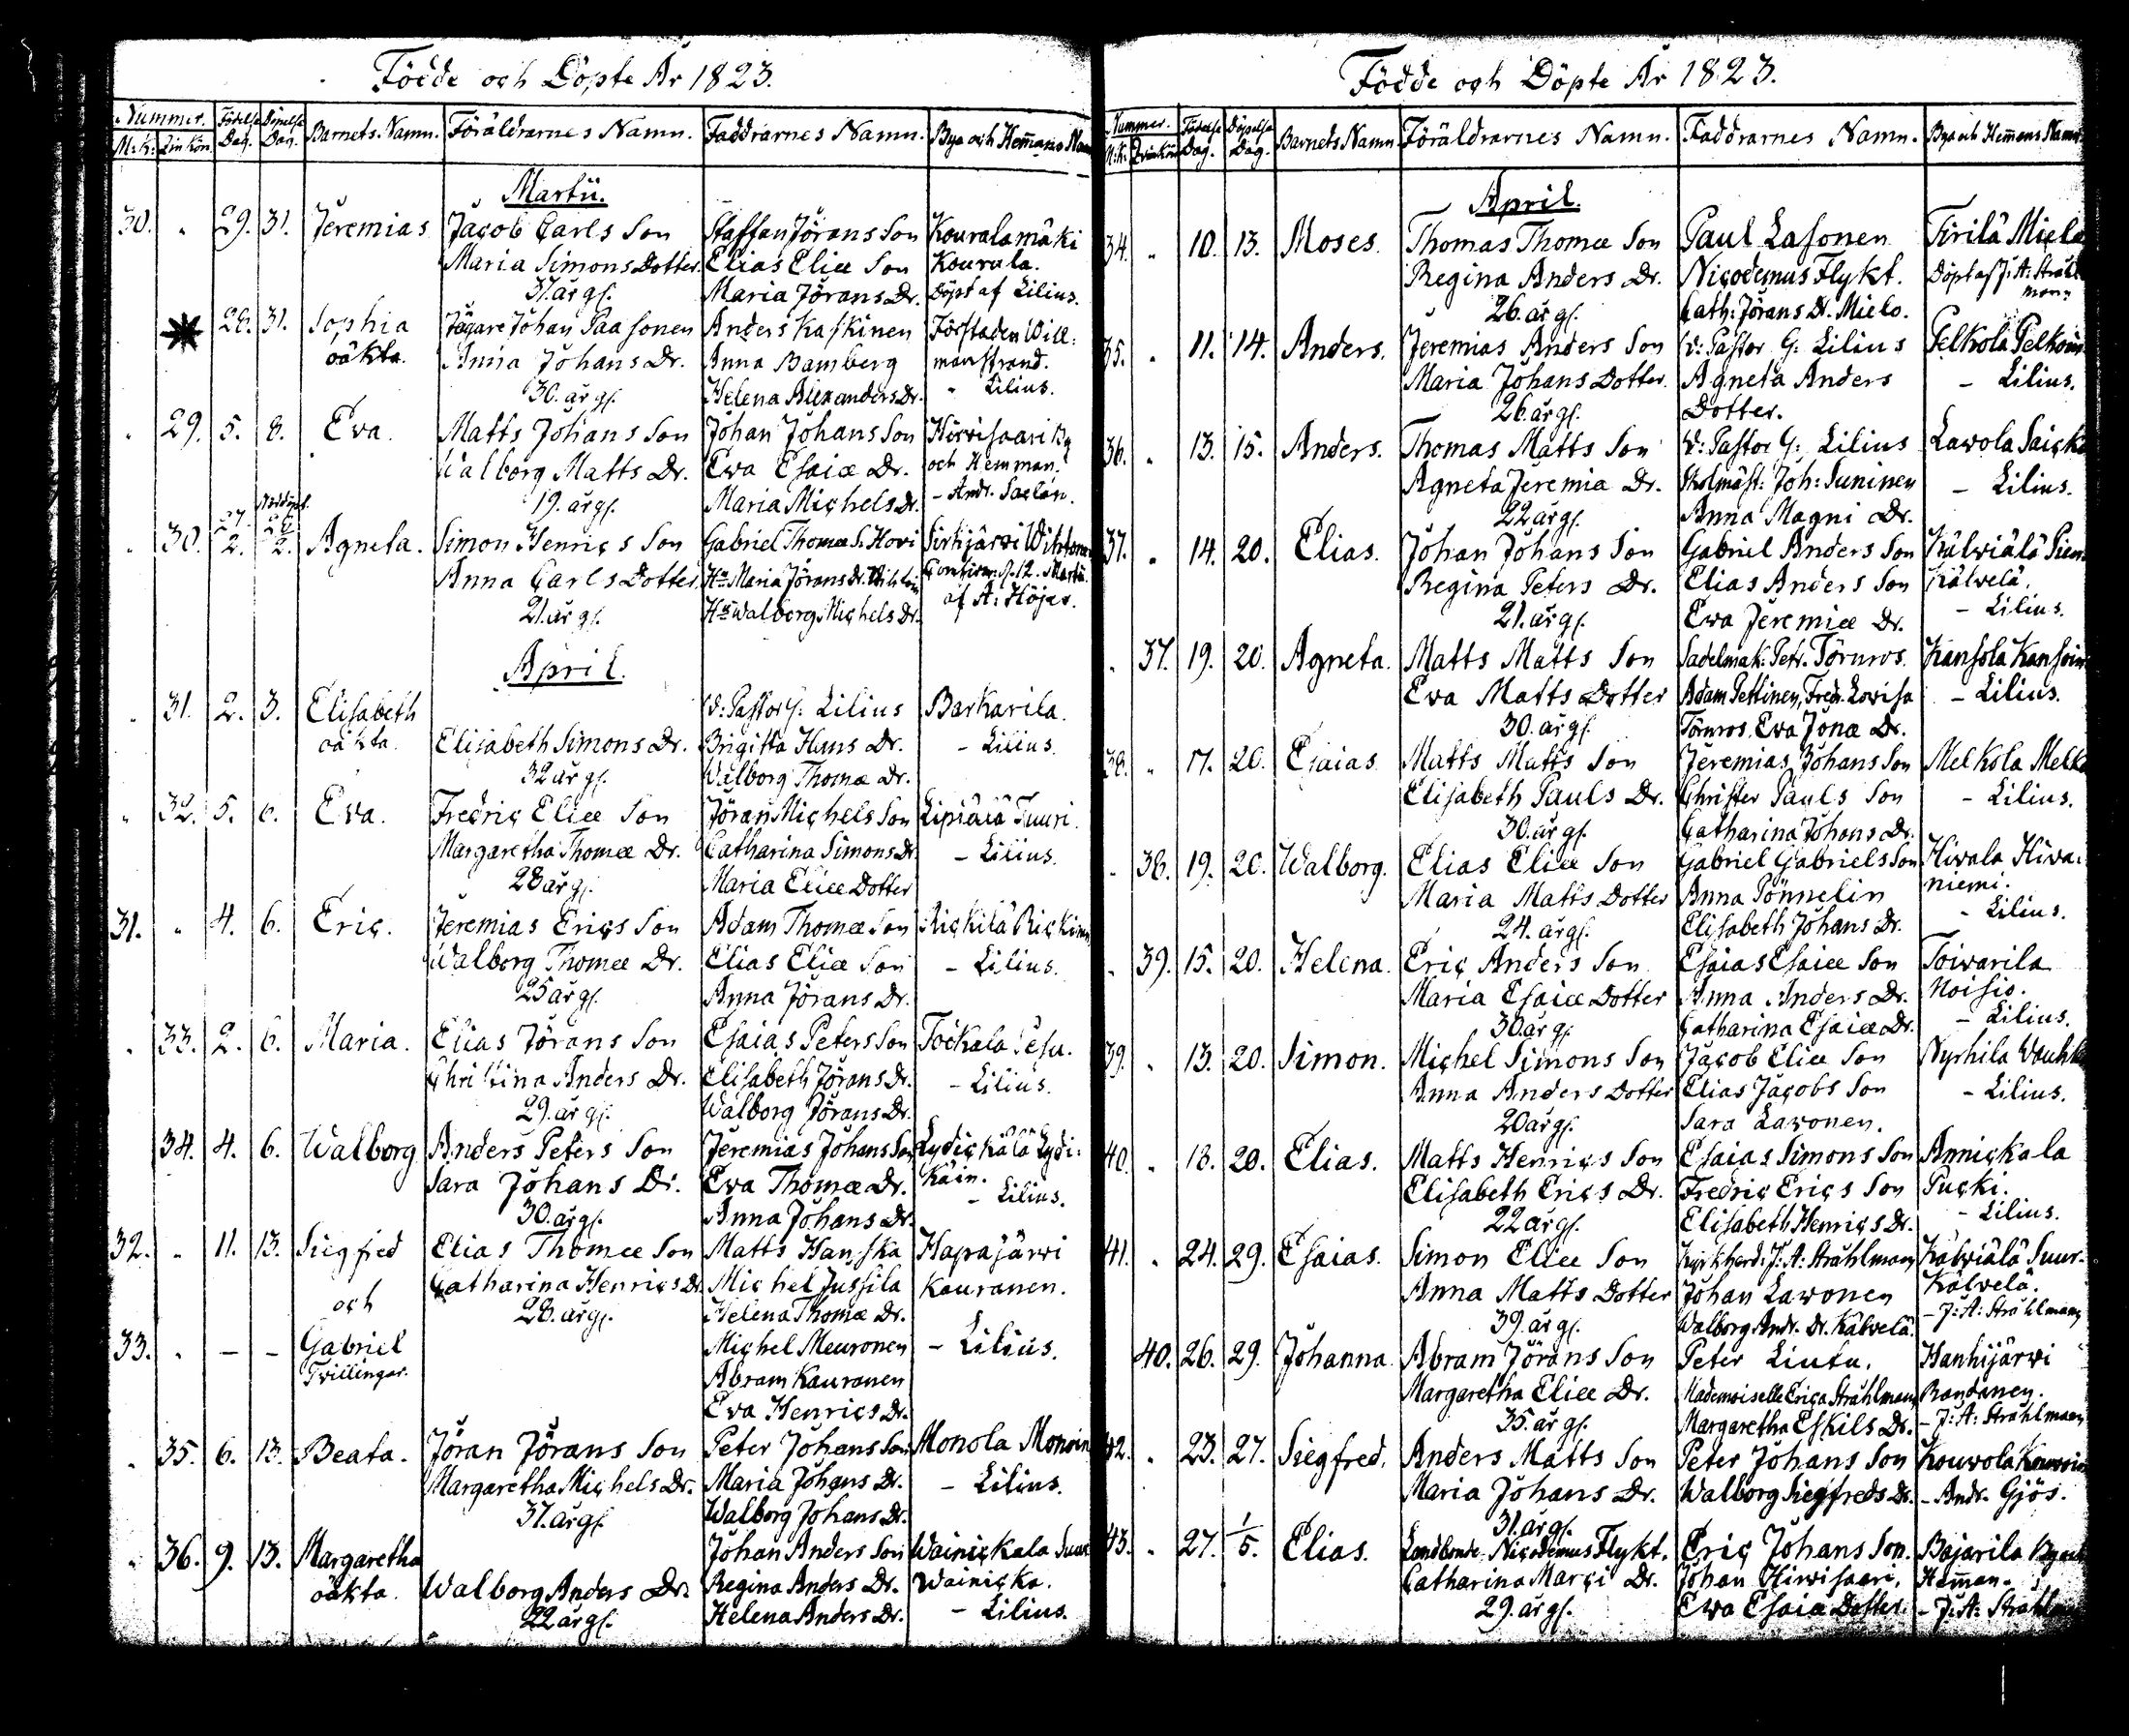 Födde och Döpte År 1823.
Nummer. Födelse Dag. Döpelse Dag. Barnets Namn. Föräldrarnes Namn. Faddrarnes Namn. Bya och Hemmans
M:k: Qvinkön
Martii.
30. " 29. 31. Jeremias Jacob Carls Son Staffan Jörans Son Kouralamäki
Maria Simons Dotter Elias Eliæ Son Kourula.
37. år gl. Maria Jörans Dr. Döpt af Lilius.
28. 31. Sophia Jägare Johan Paasonen Anders Kaskinen Förstaden Will:
oäkta. Anna Johans Dr. Anna Bamberg manstrand.
30. år gl. Helena Alexanders Dr. " Lilius.
" 29. 5. 8. Eva. Matts Johans Son Johan Johans Son Hörrisaari By
Walborg Matts Dr. Eva Esaiæ Dr. och Hemman.
19. år gl. Maria Michels Dr. - Andr. Saxlén.
" 30. 27/2. 2. Agneta. Simon Henrics Son Gabriel Thomæ S. Hovi Sirkjärvi
Anna Carls Dotter Hu Maria Jörans Dr. 12. Martii
21. år gl. Hu Walborg Michels Dr. af A: Höjer.
April.
" 31. 2. 3. Elisabeth V: Pastor G: Lilius Barkarila.
oäkta. Elisabeth Simons Dr. Brigitta Hans Dr. - Lilius.
32 år gl. Walborg Thomæ Dr.
" 32. 5. 6. Eva. Fredric Eliæ Son Jöran Michels Son Lipiälä Tuuri.
Margaretha Thomæ Dr. Catharina Simons Dr. - Lilius.
28 år gl. Maria Eliæ Dotter
31. " 4. 6. Eric. Jeremias Erics Son Adam Thomæ Son Rickilä Rickinen
Walborg Thomæ Dr. Elias Eliæ Son - Lilius.
25 år gl. Anna Jörans Dr.
" 33. 2. 6. Maria. Elias Jörans Son Esaias Peters Son Tockala Pesu.
Christina Anders Dr. Elisabeth Jörans Dr. - Lilius.
29. år gl. Walborg Jörans Dr.
34. 4. 6. Walborg Anders Peters Son Jeremias Johans Son Lydickälä Lydi:
Sara Johans Dr. Eva Thomæ Dr. käin.
30. år gl. Anna Johans Dr. - Lilius.
32. " 11. 13. Siegfred Elias Thomæ Son Matts Hanska Hapajärvi
Catharina Henrics Dr. Michel Jussila Kauranen.
och 28. år gl. Helena Thomæ Dr.
33. " - - Gabriel Michel Meuronen - Lilius.
Tvillingar. Abram Kauranen
Eva Henrics Dr.
" 35. 6. 13. Beata. Jöran Jörans Son Peter Johans Son Monola Monoin
Margaretha Michels Dr. Maria Johans Dr. - Lilius.
37. år gl. Walborg Johans Dr.
" 36. 9. 13. Margaretha Johan Anders Son Wainickala Suur
oäkta. Walborg Anders Dr. Regina Anders Dr. Wainicka.
22 år gl. Helena Anders Dr. - Lilius.
Födde och Döpte År 1823.
Nummer. Födelse Dag. Döpelse Dag. Barnets Namn. Föräldrarnes Namn. Faddrarnes Namn. Bya och Hemmans Namn.
M:k: Qvinkön
April.
34. " 10. 13. Moses. Thomas Thomæ Son Paul Lasonen Tirilä Miela
Regina Anders Dr. Nicodemus Flykt. Döpt af J: A: Strahl
26. år gl. Cath: Jörans Dr. Mielo. mann
35. " 11. 14. Anders. Jeremias Anders Son V: Pastor G: Lilius Pelkola Pelkoin
Maria Johans Dotter Agneta Anders - Lilius.
26. år gl. Dotter.
36. " 13. 15. Anders. Thomas Matts Son V: Pastor G: Lilius Lavola Saicko
Agneta Jeremiæ Dr. Skolmäst: Joh: Suninen - Lilius.
22 år gl. Anna Magni Dr.
37. " 14. 20. Elias. Johan Johans Son Gabriel Anders Son Kälviälä Pien
Regina Peters Dr. Elias Anders Son Kälvelä.
21. år gl. Eva Jeremiæ Dr. - Lilius.
" 37. 19. 20. Agneta. Matts Matts Son Sadelmak: Pet. Törnros Kansola Kansoin
Eva Matts Dotter Adam Pettinen, Fredr. Lovisa - Lilius.
30. år gl. Törnros. Eva Jonæ Dr.
38. " 17. 20. Esaias Matts Matts Son Jeremias Johans Son Melkola Melk
Elisabeth Pauls Dr. Christer Pauls Son - Lilius.
30. år gl. Catharina Johans Dr.
" 38. 19. 20. Walborg. Elias Eliæ Son Gabriel Gabriels Son Hivala Hiva:
Maria Matts Dotter Anna Pönnelin niemi.
24. år gl. Elisabeth Johans Dr. - Lilius.
" 39. 15. 20. Helena. Eric Anders Son Esaias Esaiæ Son Toivarila
Maria Esaiæ Dotter Anna Anders Dr. Noisio.
30. år gl. Catharina Esaiæ Dr. - Lilius.
39. " 13. 20. Simon. Michel Simons Son Jacob Eliæ Son Nyrhilä
Anna Anders Dotter Elias Jacobs Son - Lilius.
20 år gl. Sara Lavonen.
40. " 18. 20. Elias. Matts Henrics Son Esaias Simons Son Annickala
Elisabeth Erics Dr. Fredric Erics Son Pucki.
22 år gl. Elisabeth Henrics Dr. - Lilius.
41. " 24. 29. Esaias. Simon Eliæ Son Kyrkherd: J: A: Strahlmann Kälviälä Suur-
Anna Matts Dotter Johan Lavonen Kälvelä.
39. år gl. Walborg Andr. Dr. Kälvelä. - J: A: Strahlmann
40. 26. 29. Johanna. Abram Jörans Son Peter Liutu. Hanhijärvi
Margaretha Eliæ Dr. Mademoiselle Erica Strahlmann Rantanen.
35. år gl. Margaretha Eskils Dr. - J: A: Strahlmann
42. " 23. 27. Siegfred. Anders Matts Son Peter Johans Son Kouvola Kouvoin
Maria Johans Dr. Walborg Siegfreds Dr. - Andr. Gjös.
31. år gl.
43. " 27. 1/5. Elias. Landbonde Nicodemus Flykt. Eric Johans Son. Bajarila By och
Catharina Marci Dr. Johan Hirvisaari. Hemman.
29. år gl. Eva Esaiæ Dotter. - J: A: Strahlmann